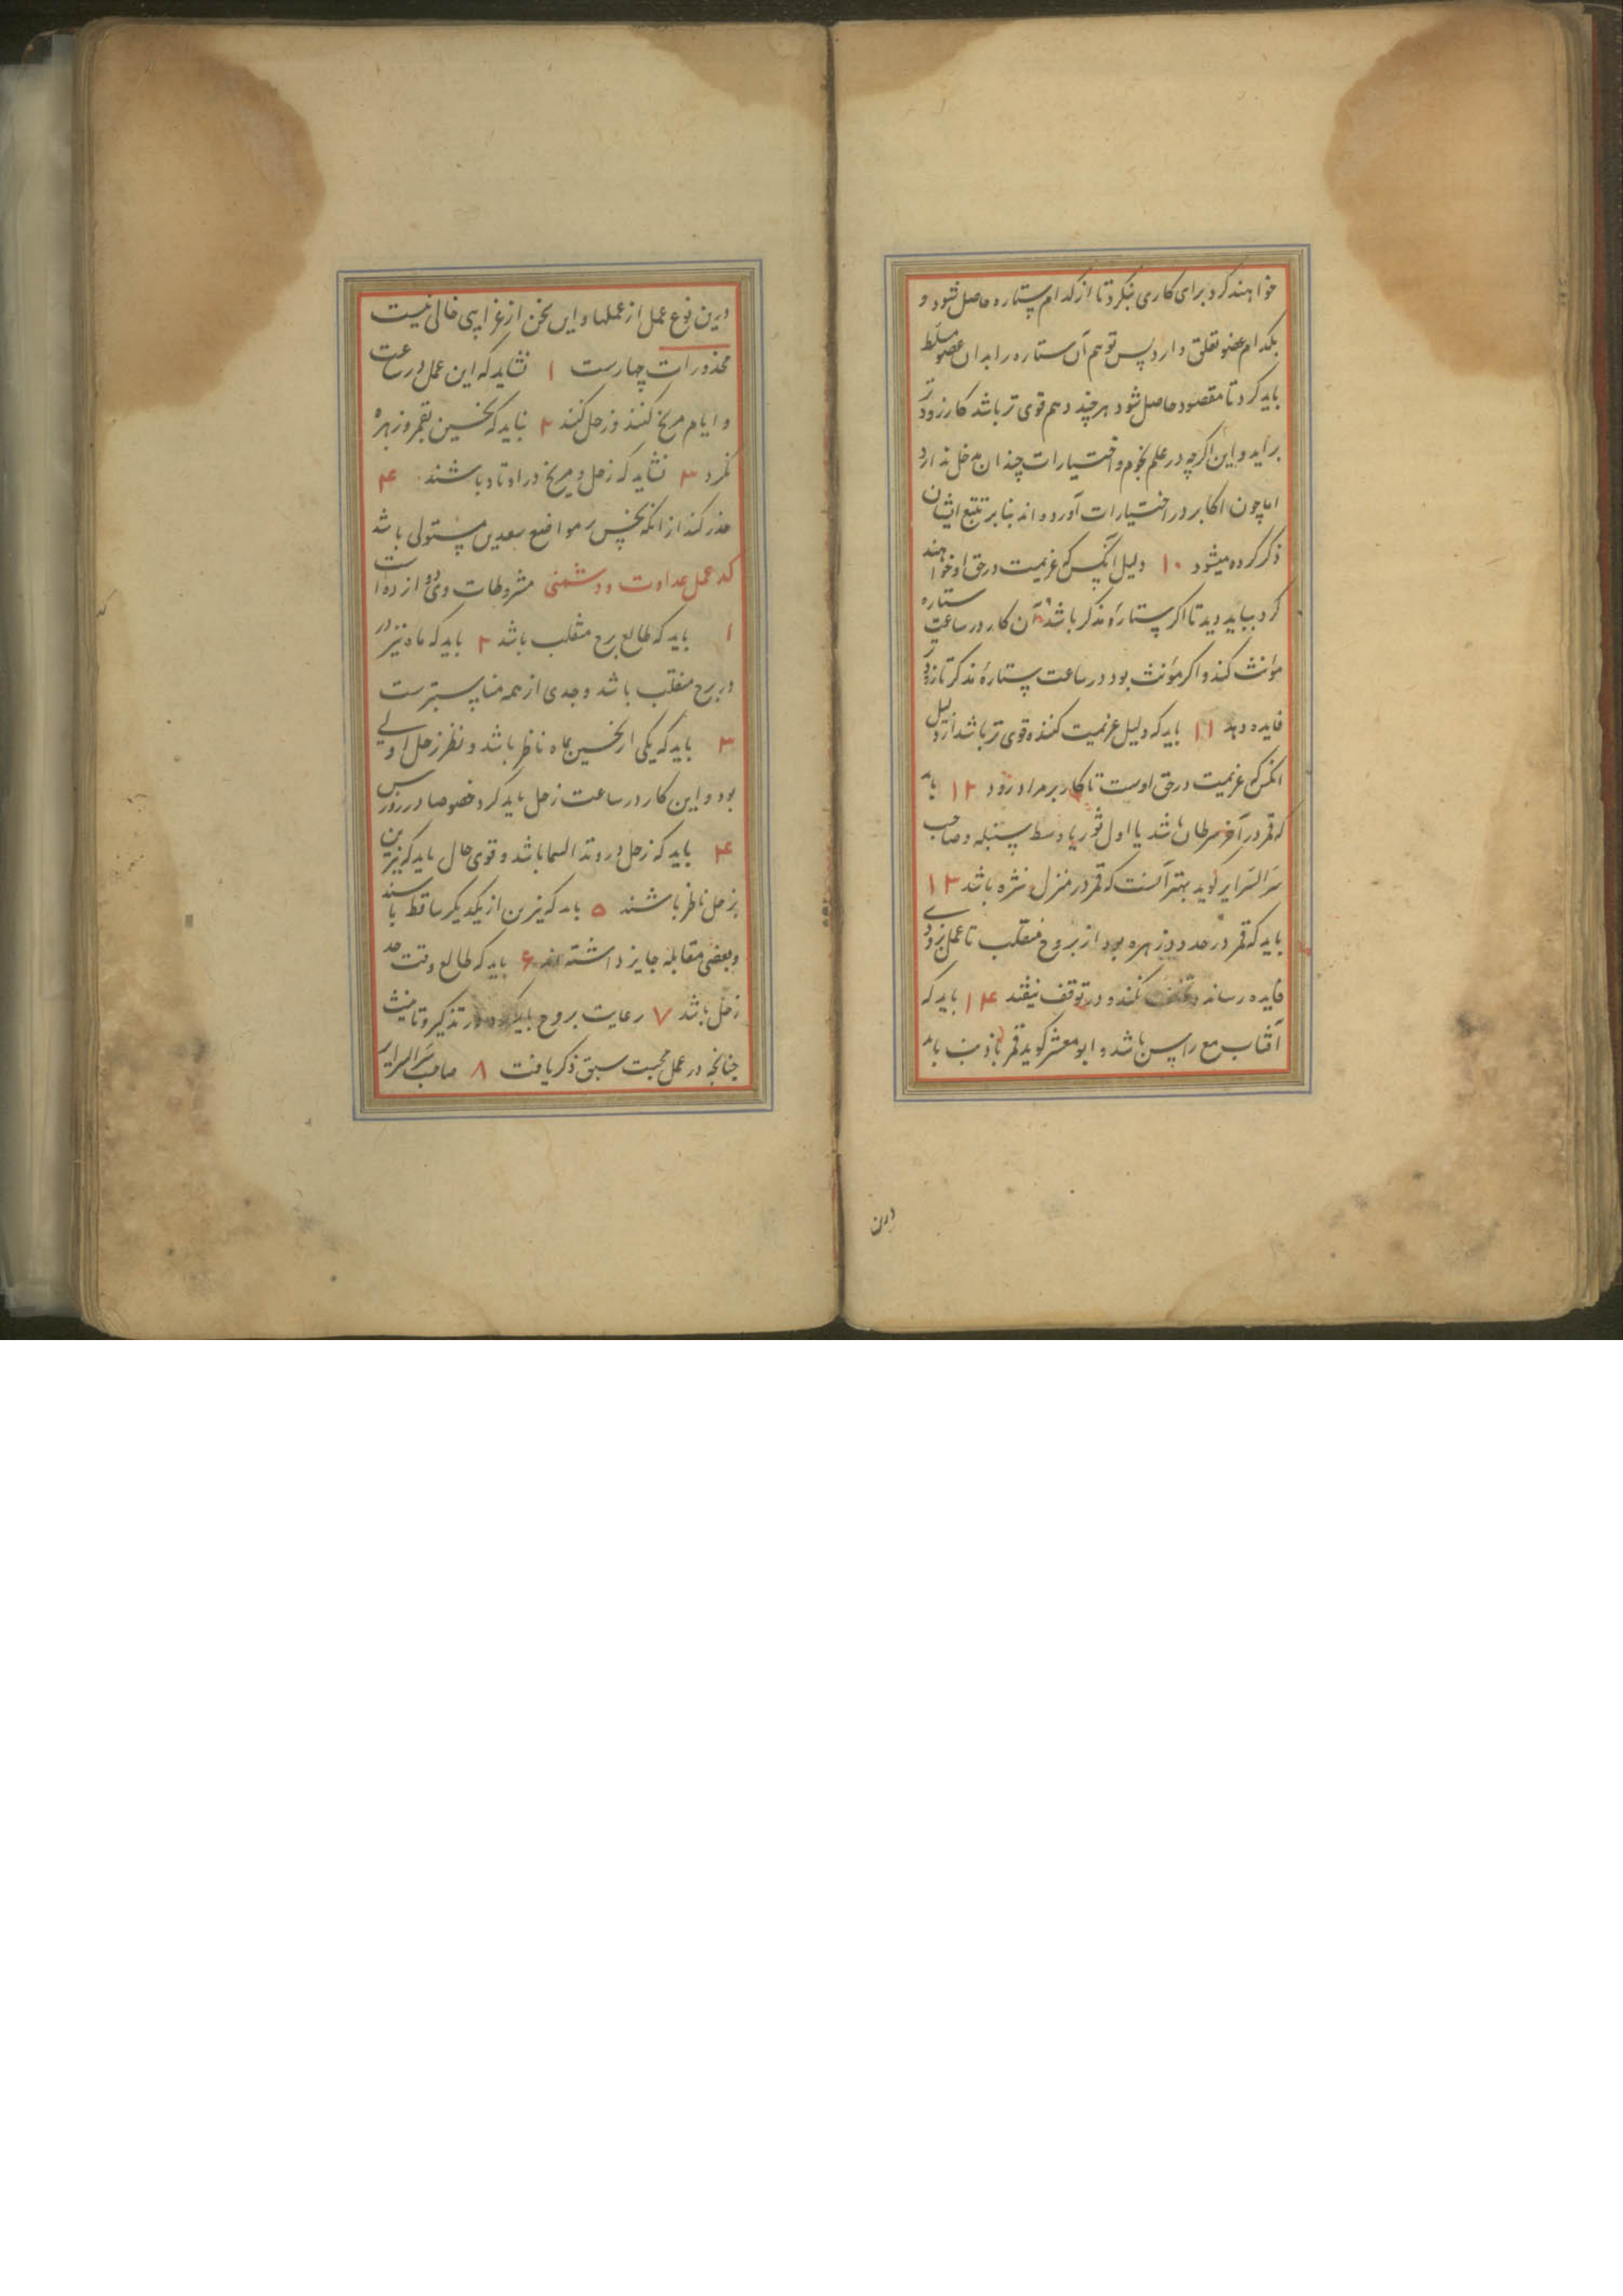 خواهند کرد برای کاری بنکرد تا از کدام ستاره حاصل شود و
بکدام عضو تعلق دارد پس توهم آن ستاره را بدان عضو مسلط
باید کرد تا مقصود حاصل شود هر چند وهم قوی تر باشد کار زودتر
براید و این اکرچه در علم نجوم و اختیارات چندان مدخل ندارد
اما چون اکابر در اختیارات آورده اند بنابر تتبع ایشان
ذکر کرده میشود ۱۰ دلیل آنکس که عزیمت در حق او خواهند
کرد بباید دید تا اکر ستارهٔ مذکر باشد آن کار در ساعت ستاره
مؤنث کند و اکر مؤنث بود در ساعت ستارهٔ مذکر تا زودتر
فایده دهد ۱۱ باید که دلیل عزیمت کننده قوی تر باشد از دلیل
انکس که عزیمت در حق اوست تا کار بر مراد رود ۱۲ باید
که قمر در آخر سرطان باشد یا اول ثور یا وسط سنبله و صاحب
سر السرایر کوید بهتر آنست که قمر در منزل نثره باشد ۱۳
باید که قمر در حدود زهره بود از بروج منقلب تا عمل بزودی
فایده رساند و نکند و در توقف نیفتد ۱۴ باید که
آفتاب مع راس باشد و ابو معشر کوید قمر باید
درین
درین نوع عمل از عملها و این سخن از غرایبی خالی نیست
محذورات چهارست ۱ نشاید که این عمل در ساعت
و ایام مریخ کنند و زحل کنند ۲ نباید که نحسین بقمر و زهره
نکرد ۳ نشاید که زحل و مریخ در اوتاد باشند ۴
حذر کند از انکه نحس بر مواضع سعدین مستولی باشد
که عمل عداوت و دشمنی مشروطات وی دوازده است
۱ باید که طالع برج منقلب باشد ۲ باید که ماه نیز در
در برج منقلب باشد و جدی از همه مناسبترست
۳ باید که یکی از نحسین بماه ناظر باشد و نظر زحل اولی
بود و این کار در ساعت زحل باید کرد خصوصا در روز س
۴ باید که زحل در وتد السما باشد و قوی حال باید که نیرین
بزحل ناظر باشند ۵ باید که نیرین از یکدیکر ساقط باشند
و بعضی مقابله جایز داشته اند ۶ باید که طالع وقت حد
زحل باشد ۷ رعایت بروج باید کرد در تذکیر و تانیث
چنانچه در عمل محبت سبق ذکر یافت ۸ صاحب سر السرایر